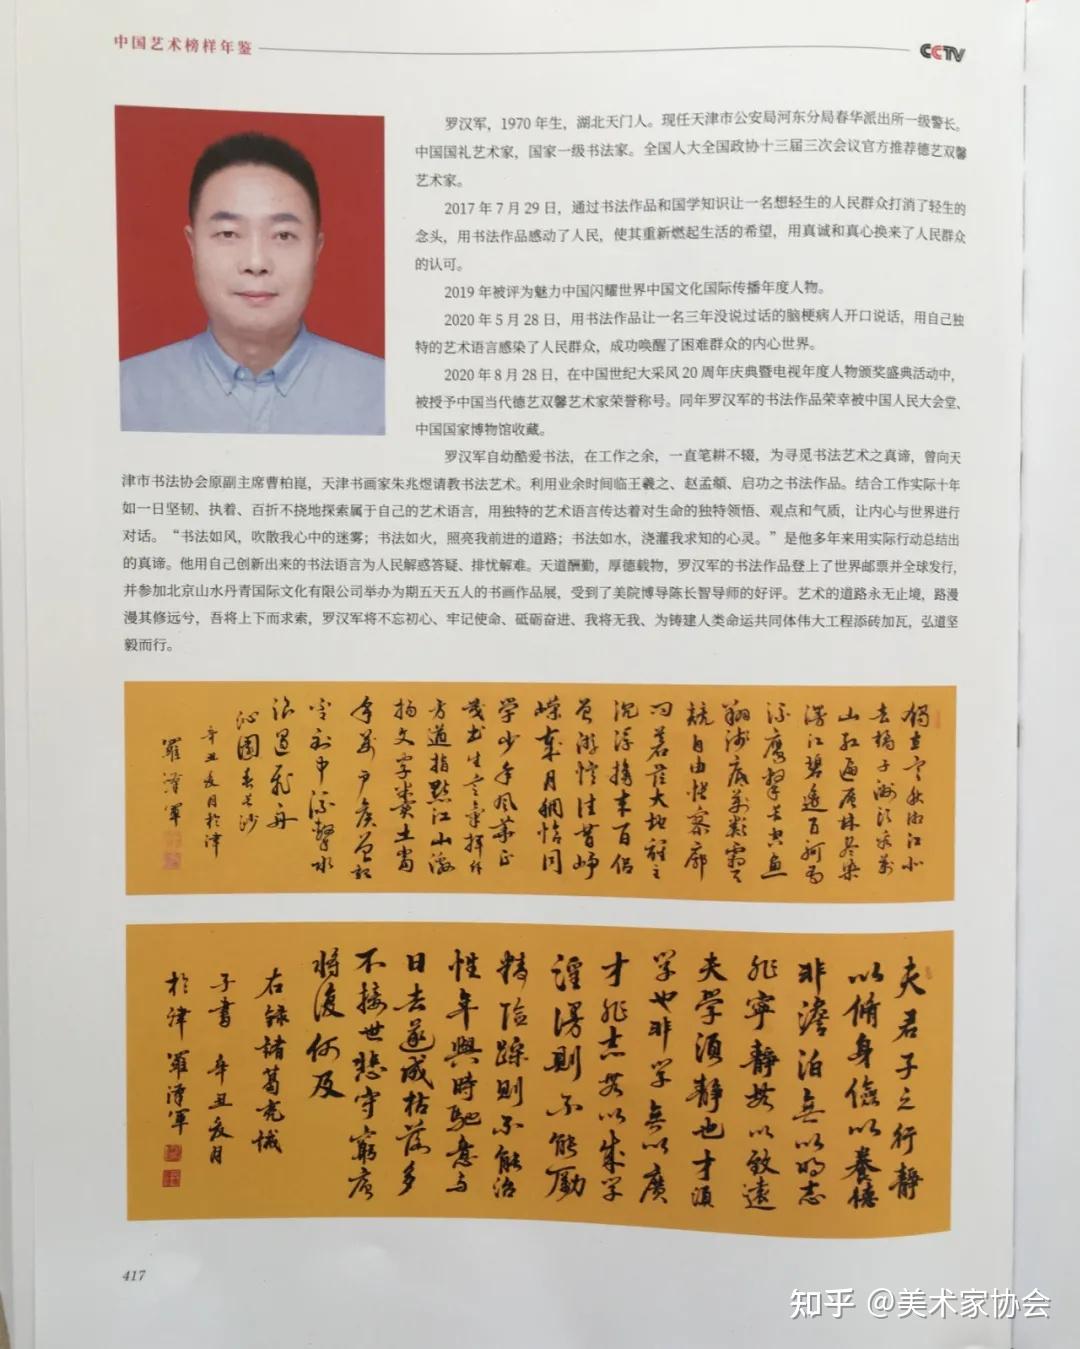 中国艺术榜样年鉴
CCTV
罗汉军，1970 年生，湖北天门人。现任天津市公安局河东分局春华派出所一级警长。
中国国礼艺术家，国家一级书法家。全国人大全国政协十三届三次会议官方推荐德艺双馨
艺术家。
2017 年 7 月 29 日，通过书法作品和国学知识让一名想轻生的人民群众打消了轻生的
念头，用书法作品感动了人民，使其重新燃起生活的希望，用真诚和真心换来了人民群众
的认可。
2019 年被评为魅力中国闪耀世界中国文化国际传播年度人物。
2020 年 5 月 28 日，用书法作品让一名三年没说过话的脑梗病人开口说话，用自己独
特的艺术语言感染了人民群众，成功唤醒了困难群众的内心世界。
2020 年 8 月 28 日，在中国世纪大采风 20 周年庆典暨电视年度人物颁奖盛典活动中，
被授予中国当代德艺双馨艺术家荣誉称号。同年罗汉军的书法作品荣幸被中国人民大会堂、
中国国家博物馆收藏。
罗汉军自幼酷爱书法，在工作之余，一直笔耕不辍，为寻觅书法艺术之真谛，曾向天
津市书法协会原副主席曹柏崑，天津书画家朱兆煜请教书法艺术。利用业余时间临王羲之、赵孟頫、启功之书法作品。结合工作实际十年
如一日坚韧、执着、百折不挠地探索属于自己的艺术语言，用独特的艺术语言传达着对生命的独特领悟、观点和气质，让内心与世界进行
对话。“书法如风，吹散我心中的迷雾；书法如火，照亮我前进的道路；书法如水，浇灌我求知的心灵。”是他多年来用实际行动总结出
的真谛。他用自己创新出来的书法语言为人民解惑答疑、排忧解难。天道酬勤，厚德载物，罗汉军的书法作品登上了世界邮票并全球发行，
并参加北京山水丹青国际文化有限公司举办为期五天五人的书画作品展，受到了美院博导陈长智导师的好评。艺术的道路永无止境，路漫
漫其修远兮，吾将上下而求索，罗汉军将不忘初心、牢记使命、砥砺奋进、我将无我、为铸建人类命运共同体伟大工程添砖加瓦，弘道坚
毅而行。
獨立寒秋湘江北
去橘子洲頭看萬
山紅遍層林盡染
漫江碧透百舸爭
流鷹擊長空魚
翔淺底萬類霜天
競自由悵寥廓
問蒼茫大地誰主
沉浮攜來百侣
曾游憶往昔崢
嶸歲月稠恰同
學少年風華正
茂書生意氣揮斥
方遒指點江山激
揚文字糞土當
年萬户侯曾記
否到中流擊水
浪遏飛舟
沁園春長沙
辛丑夏月於津
羅漢軍
夫君子之行靜
以脩身儉以養德
非澹泊無以明志
非寧靜無以致遠
夫學須靜也才須
學也非學無以廣
才非志無以成學
淫漫則不能勵
精險躁則不能治
性年與時馳意與
日去遂成枯落多
不接世悲守窮廬
將復何及
右録諸葛亮誡
子書 辛丑夏月
於津 羅漢軍
417
知乎 @美术家协会